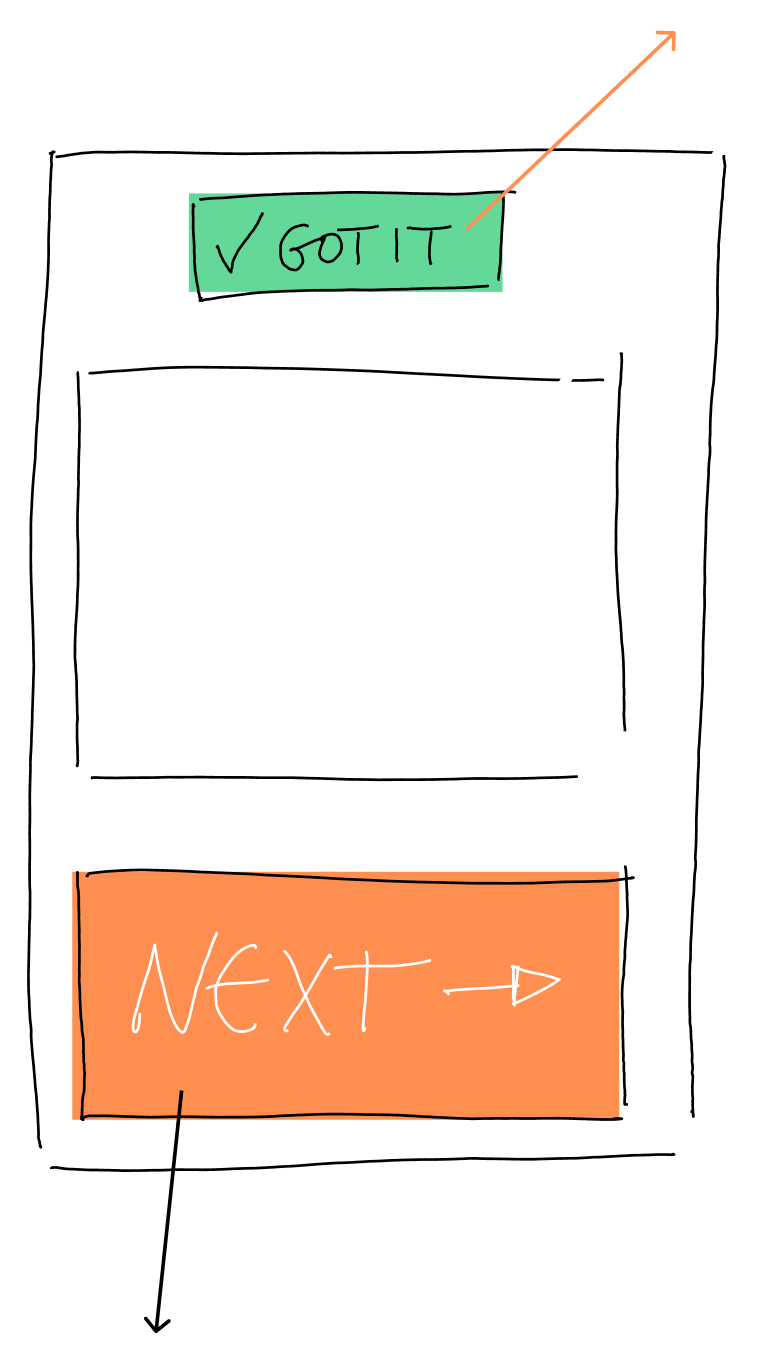 ✓ GOT IT
NEXT →